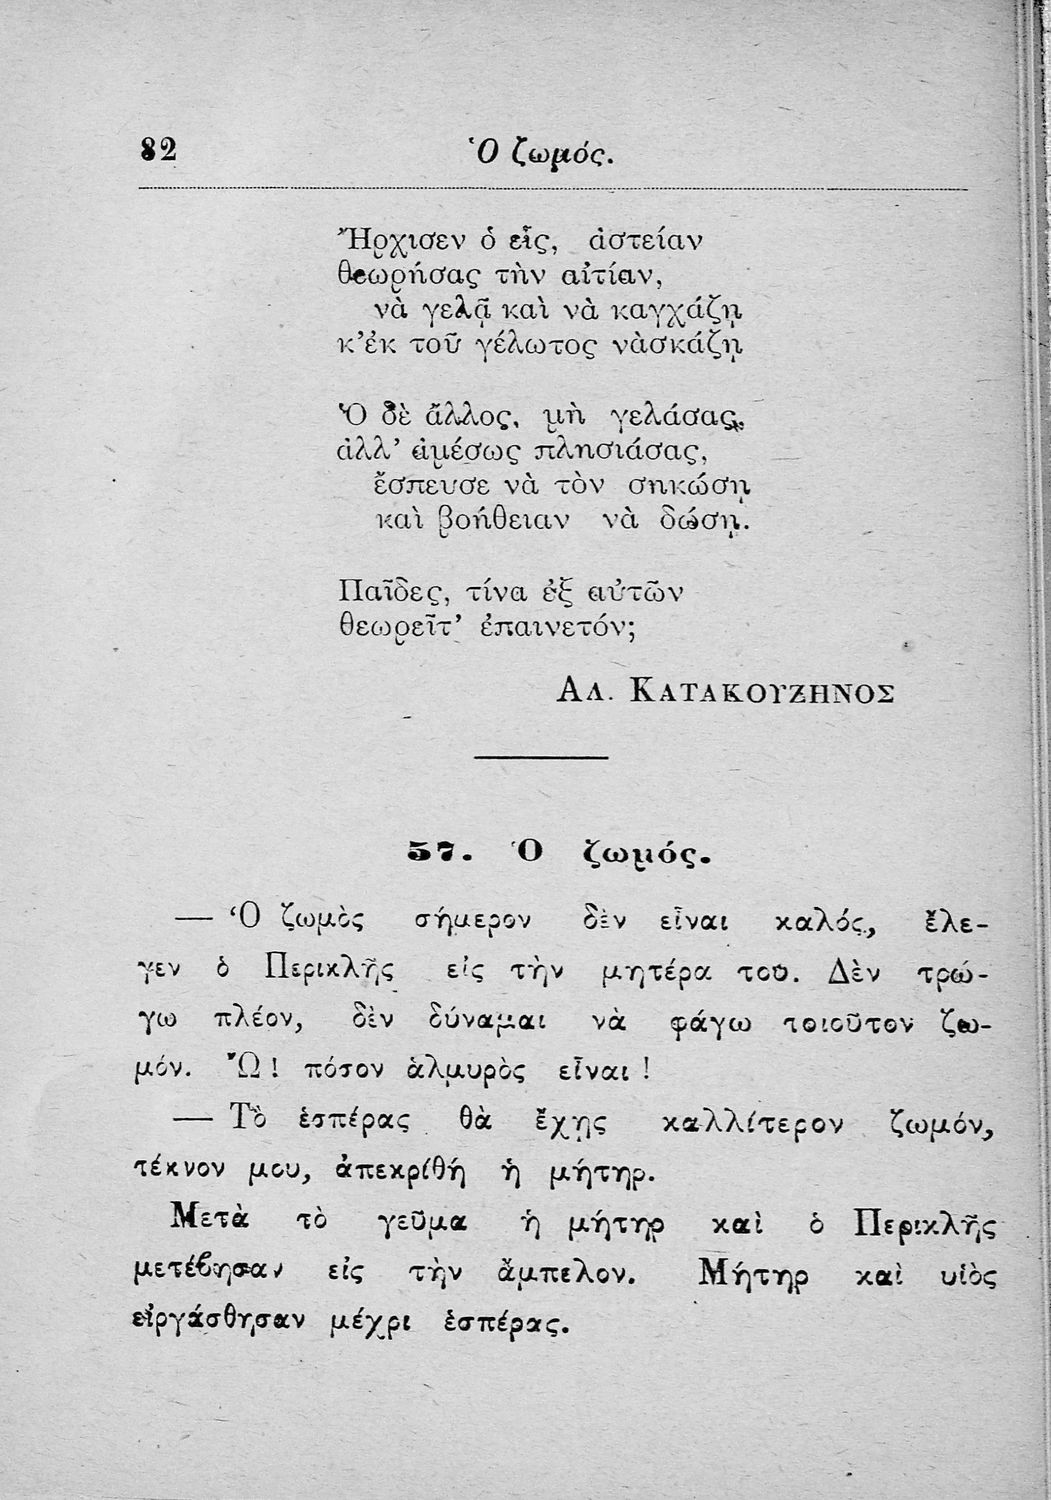 82 Ὁ ζωμός.
Ἤρχισεν ὁ εἷς, ἀστείαν
θεωρήσας τὴν αἰτίαν,
νὰ γελᾷ καὶ νὰ καγχάζῃ
κ’ἐκ τοῦ γέλωτος νὰσκάζῃ
Ὁ δὲ ἄλλος, μὴ γελάσας,
ἀλλ’ ἀμέσως πλησιάσας,
ἔσπευσε νὰ τὸν σηκώσῃ
καὶ βοήθειαν νὰ δώσῃ.
Παῖδες, τίνα ἐξ αὐτῶν
θεωρεῖτ’ ἐπαινετόν;
ΑΛ. ΚΑΤΑΚΟΥΖΗΝΟΣ
57. Ὁ ζωμός.
— Ὁ ζωμὸς σήμερον δὲν εἶναι καλός, ἔλε-
γεν ὁ Περικλῆς εἰς τὴν μητέρα του. Δὲν τρώ-
γω πλέον, δὲν δύναμαι νὰ φάγω τοιοῦτον ζω-
μόν. Ὢ! πόσον ἁλμυρὸς εἶναι!
— Τὸ ἑσπέρας θὰ ἔχῃς καλλίτερον ζωμόν,
τέκνον μου, ἀπεκρίθη ἡ μήτηρ.
Μετὰ τὸ γεῦμα ἡ μήτηρ καὶ ὁ Περικλῆς
μετέβησαν εἰς τὴν ἄμπελον. Μήτηρ καὶ υἱὸς
εἰργάσθησαν μέχρι ἑσπέρας.